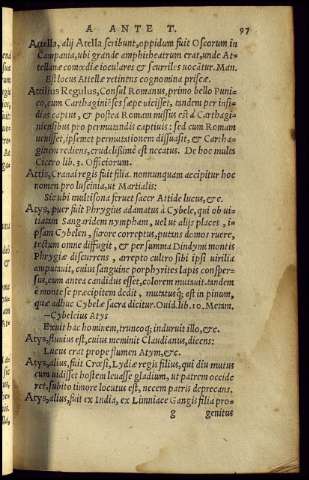 A ANTE T. 97
Attella, alij Atella scribunt, oppidum fuit Oscorum in
Campania, ubi grande amphitheatrum erat, unde At-
tellanæ comœdiæ ioculares & scurriles uocātur. Man.
Est locus Attellæ retinens cognomina priscæ.
Attilius Regulus, Consul Romanus, primo bello Puni-
co, cum Carthaginēses sæpe uicisset, tandem per insi-
dias captus, & postea Romam missus est à Carthagi-
niensibus pro permutandis captiuis: sed cum Romam
uenisset, ipsemet permutationem dissuasit, & Cartha-
ginem rediens, crudelissimè est necatus. De hoc mules
Cicero lib. 3. Officiorum.
Attis, Cranai regis fuit filia. nonnunquam accipitur hoc
nomen pro luscinia, ut Martialis:
Sic ubi multisona feruet sacer Attide lucus, &c.
Atys, puer fuit Phrygius adamatus à Cybele, qui ob ui-
tiatam Sangaridem nympham, uel ut alijs placet, in
ipsam Cybelen, furore correptus, patrios domos ruere,
tectum omne diffugit, & per summa Dindymi montis
Phrygiæ discurrens, arrepto cultro sibi ipsi uirilia
amputauit, cuius sanguine porphyrites lapis consper-
sus, cum antea candidus esset, colorem mutauit. tandem
è monte se præcipitem dedit, mutatusq́; est in pinum,
quæ adhuc Cybelæ sacra dicitur. Ouid. lib. 10. Metam.
—Cybeleius Atys
Exuit hac hominem, truncoq́; induruit illo, &c.
Atys, fluuius est, cuius meminit Claudianus, dicens:
Lucus erat prope flumen Atym, &c.
Atys, alius, fuit Crœsi, Lydiæ regis filius, qui diu mutus
cum uidisset hostem leuasse gladium, ut patrem occide
ret, subito timore locutus est, necem patris deprecans.
Atys, alius, fuit ex India, ex Limniace Gangis filia pro-
g genitus